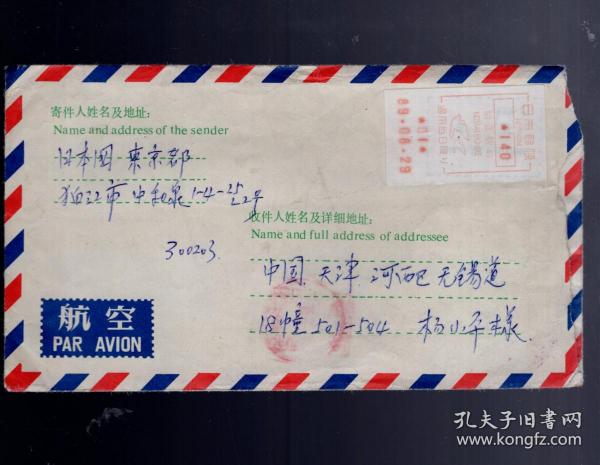 寄件人姓名及地址:
Name and address of the sender
日本国 東京都
狛江市 中和泉 1-4-25
300203
收件人姓名及详细地址:
Name and full address of addressee
中国 天津 河西区 无锡道
18幢 501-504 杨小平様
航空
PAR AVION
*140
*01*
89.06.29
孔夫子旧书网
www.kongfz.com